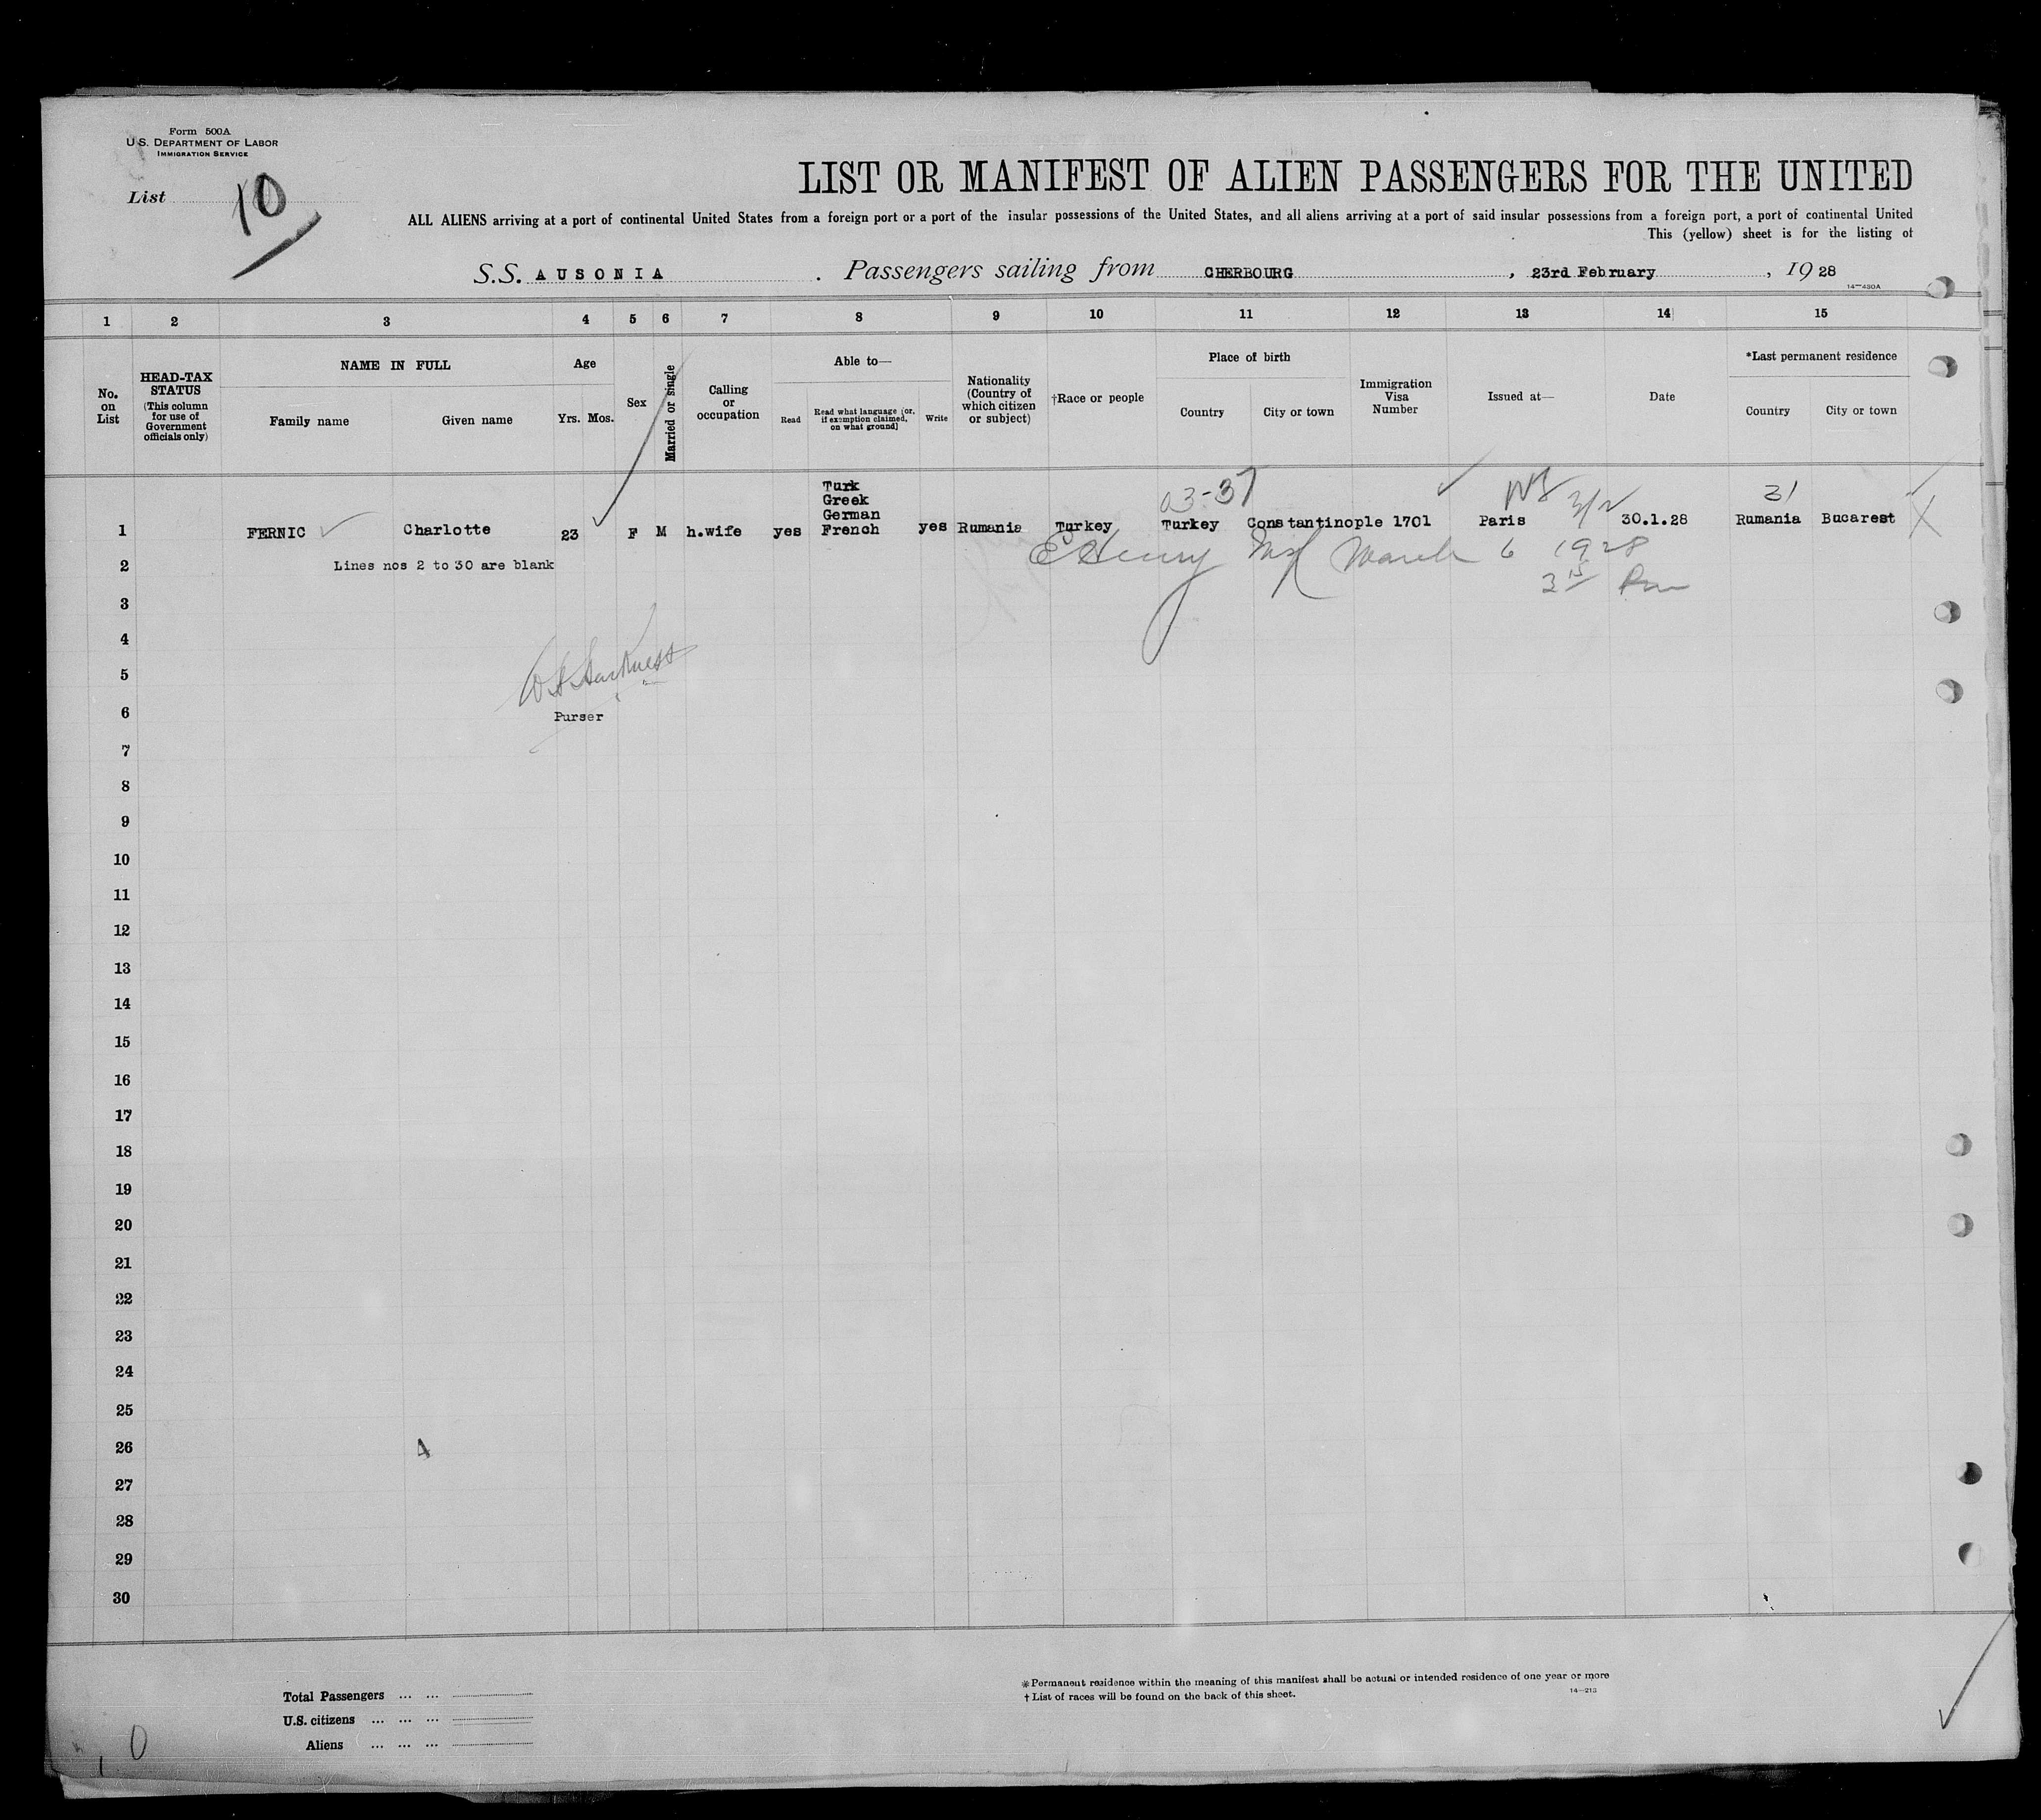 Form 500A
U.S. DEPARTMENT OF LABOR
IMMIGRATION SERVICE
List 10
LIST OR MANIFEST OF ALIEN PASSENGERS FOR THE UNITED
ALL ALIENS arriving at a port of continental United States from a foreign port or a port of the insular possessions of the United States, and all aliens arriving at a port of said insular possessions from a foreign port, a port of continental United
This (yellow) sheet is for the listing of
S.S. AUSONIA. Passengers sailing from CHERBOURG, 23rd February, 1928
14—430A
1 2 3 4 5 6 7 8 9 10 11 12 13 14 15
No. on List
HEAD-TAX STATUS
(This column for use of Government officials only)
NAME IN FULL
Family name Given name
Age
Yrs. Mos.
Sex
Married or single
Calling or occupation
Able to—
Read
Read what language [or, if exemption claimed, on what ground]
Write
Nationality (Country of which citizen or subject)
†Race or people
Place of birth
Country City or town
Immigration Visa Number
Issued at—
Date
*Last permanent residence
Country City or town
03-37 3/2 31
Turk
Greek
German
1 FERNIC Charlotte 23 F M h.wife yes French yes Rumania Turkey Turkey Constantinople 1701 Paris 30.1.28 Rumania Bucarest X
E Henry March 6 1928
2 Lines nos 2 to 30 are blank
3 15 Pm
3
4
5
W A Harkness
6 Purser
7
8
9
10
11
12
13
14
15
16
17
18
19
20
21
22
23
24
25
26 4
27
28
29
30
Total Passengers ... ...
U.S. citizens ... ... ...
Aliens ... ... ...
0
*Permanent residence within the meaning of this manifest shall be actual or intended residence of one year or more
† List of races will be found on the back of this sheet.
14—213